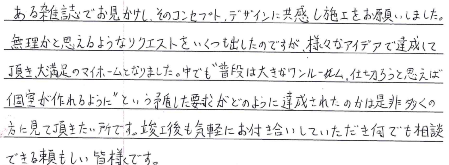 ある雑誌でお見かけし、そのコンセプト、デザインに共感し施工をお願いしました。
無理かと思えるようなリクエストをいくつも出したのですが、様々なアイデアで達成して
頂き、大満足のマイホームとなりました。中でも"普段は大きなワンルーム、仕切ろうと思えば
個室が作れるように"という矛盾した要求がどのように達成されたのかは是非多くの
方に見て頂きたい所です。竣工後も気軽にお付き合いしていただき何でも相談
できる頼もしい皆様です。